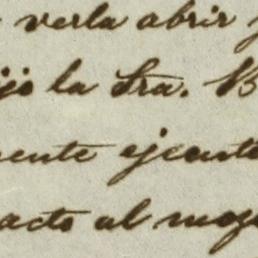 verla abrir
la Sra. B
ente ejecuto
acto al mozo